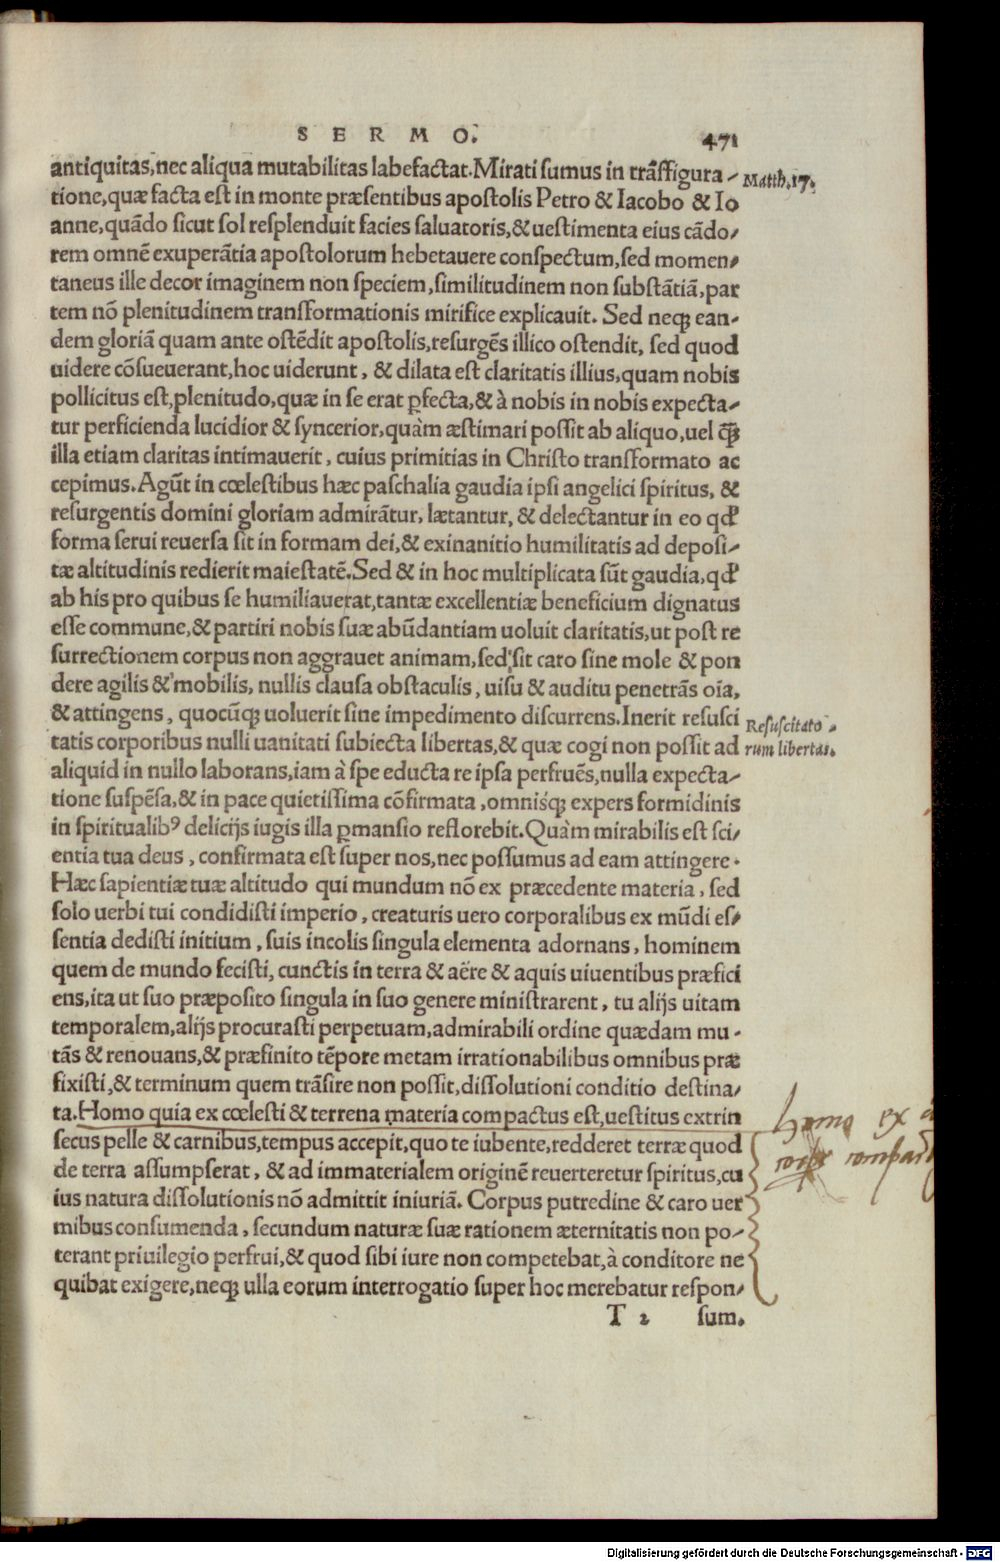 SERMO. 471
antiquitas,nec aliqua mutabilitas labefactat.Mirati sumus in trãsfigura-
Matth.17.
tione,quæ facta est in monte præsentibus apostolis Petro & Iacobo & Io
anne,quãdo sicut sol resplenduit facies saluatoris,& uestimenta eius cãdo-
rem omnẽ exuperãtia apostolorum hebetauere conspectum,sed momen-
taneus ille decor imaginem non speciem,similitudinem non substãtiã,par
tem nõ plenitudinem transformationis mirifice explicauit. Sed neqꝫ ean-
dem gloriã quam ante ostẽdit apostolis,resurgẽs illico ostendit, sed quod
uidere cõsueuerant,hoc uiderunt, & dilata est claritatis illius,quam nobis
pollicitus est,plenitudo,quæ in se erat ꝑfecta,& à nobis in nobis expecta-
tur perficienda lucidior & syncerior,quàm æstimari possit ab aliquo,uel q̃ꝫ
illa etiam claritas intimauerit, cuius primitias in Christo transformato ac
cepimus.Agũt in cœlestibus hæc paschalia gaudia ipsi angelici spiritus, &
resurgentis domini gloriam admirãtur, lætantur, & delectantur in eo qđ
forma serui reuersa sit in formam dei,& exinanitio humilitatis ad deposi-
tæ altitudinis redierit maiestatẽ.Sed & in hoc multiplicata sũt gaudia,qđ
ab his pro quibus se humiliauerat,tantæ excellentiæ beneficium dignatus
esse commune,& partiri nobis suæ abũdantiam uoluit claritatis,ut post re
surrectionem corpus non aggrauet animam,sed sit caro sine mole & pon
dere agilis & mobilis, nullis clausa obstaculis, uisu & auditu penetrãs oĩa,
& attingens, quocũqꝫ uoluerit sine impedimento discurrens.Inerit resusci
Resuscitato-
tatis corporibus nulli uanitati subiecta libertas,& quæ cogi non possit ad
rum libertas.
aliquid in nullo laborans,iam à spe educta re ipsa perfruẽs,nulla expecta-
tione suspẽsa,& in pace quietissima cõfirmata, omnisqꝫ expers formidinis
in spiritualibꝰ delicijs iugis illa ꝑmansio reflorebit.Quàm mirabilis est sci-
entia tua deus, confirmata est super nos,nec possumus ad eam attingere.
Hæc sapientiæ tuæ altitudo qui mundum nõ ex præcedente materia, sed
solo uerbi tui condidisti imperio, creaturis uero corporalibus ex mũdi es-
sentia dedisti initium, suis incolis singula elementa adornans, hominem
quem de mundo fecisti, cunctis in terra & aëre & aquis uiuentibus præfici
ens,ita ut suo præposito singula in suo genere ministrarent, tu alijs uitam
temporalem,alijs procurasti perpetuam,admirabili ordine quædam mu-
tãs & renouans,& præfinito tẽpore metam irrationabilibus omnibus præ
fixisti,& terminum quem trãsire non possit,dissolutioni conditio destina-
ta.Homo quia ex cœlesti & terrena materia compactus est,uestitus extrin
Homo ex
secus pelle & carnibus,tempus accepit,quo te iubente,redderet terræ quod
de terra assumpserat, & ad immaterialem originẽ reuerteretur spiritus,cu
ius natura dissolutionis nõ admittit iniuriã. Corpus putredine & caro uer
mibus consumenda, secundum naturæ suæ rationem æternitatis non po-
terant priuilegio perfrui,& quod sibi iure non competebat,à conditore ne
quibat exigere,neqꝫ ulla eorum interrogatio super hoc merebatur respon-
T 2 sum.
Digitalisierung gefördert durch die Deutsche Forschungsgemeinschaft - DFG